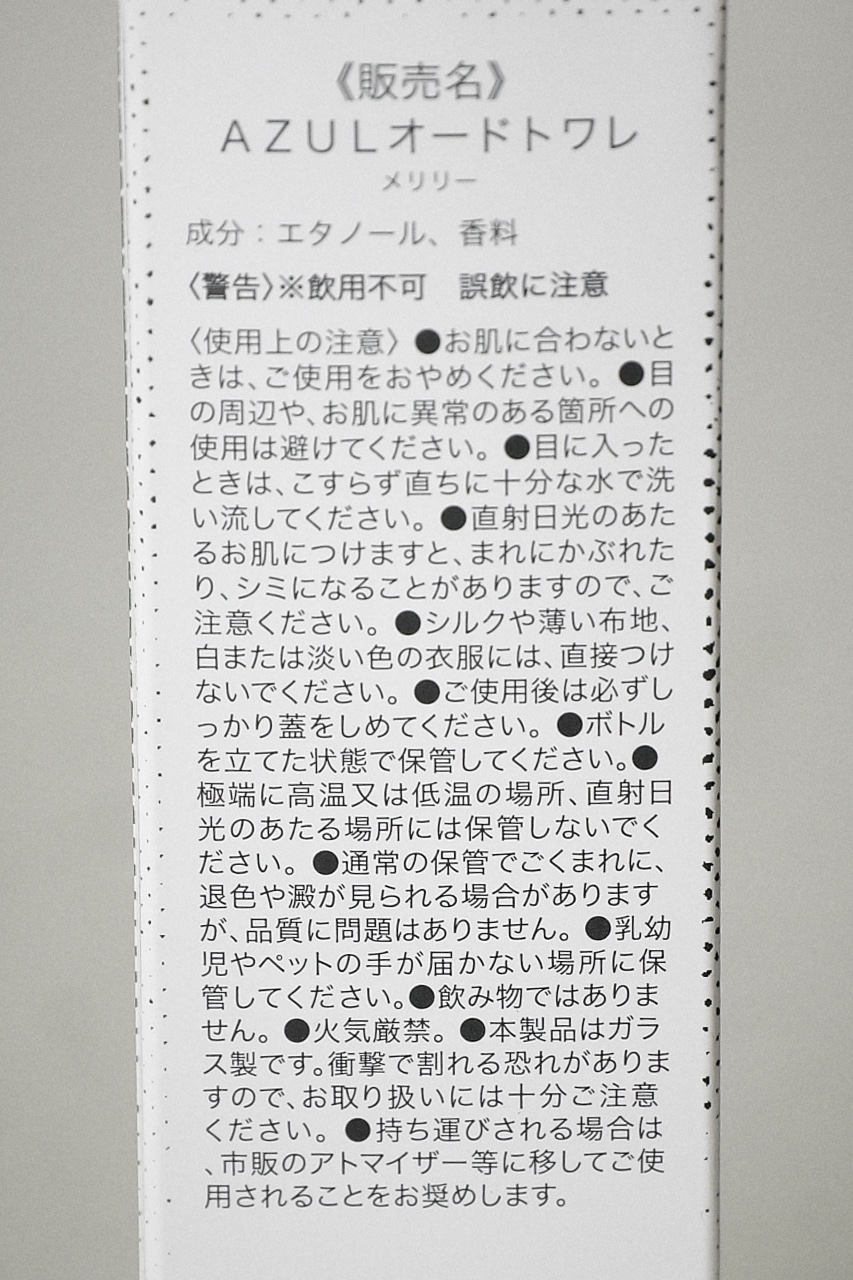 《販売名》
ＡＺＵＬオードトワレ
メリリー
成分：エタノール、香料
〈警告〉※飲用不可　誤飲に注意
〈使用上の注意〉●お肌に合わないと
きは、ご使用をおやめください。●目
の周辺や、お肌に異常のある箇所への
使用は避けてください。●目に入った
ときは、こすらず直ちに十分な水で洗
い流してください。●直射日光のあた
るお肌につけますと、まれにかぶれた
り、シミになることがありますので、ご
注意ください。●シルクや薄い布地、
白または淡い色の衣服には、直接つけ
ないでください。●ご使用後は必ずし
っかり蓋をしめてください。●ボトル
を立てた状態で保管してください。●
極端に高温又は低温の場所、直射日
光のあたる場所には保管しないでく
ださい。●通常の保管でごくまれに、
退色や澱が見られる場合があります
が、品質に問題はありません。●乳幼
児やペットの手が届かない場所に保
管してください。●飲み物ではありま
せん。●火気厳禁。●本製品はガラ
ス製です。衝撃で割れる恐れがありま
すので、お取り扱いには十分ご注意
ください。●持ち運びされる場合は
、市販のアトマイザー等に移してご使
用されることをお奨めします。